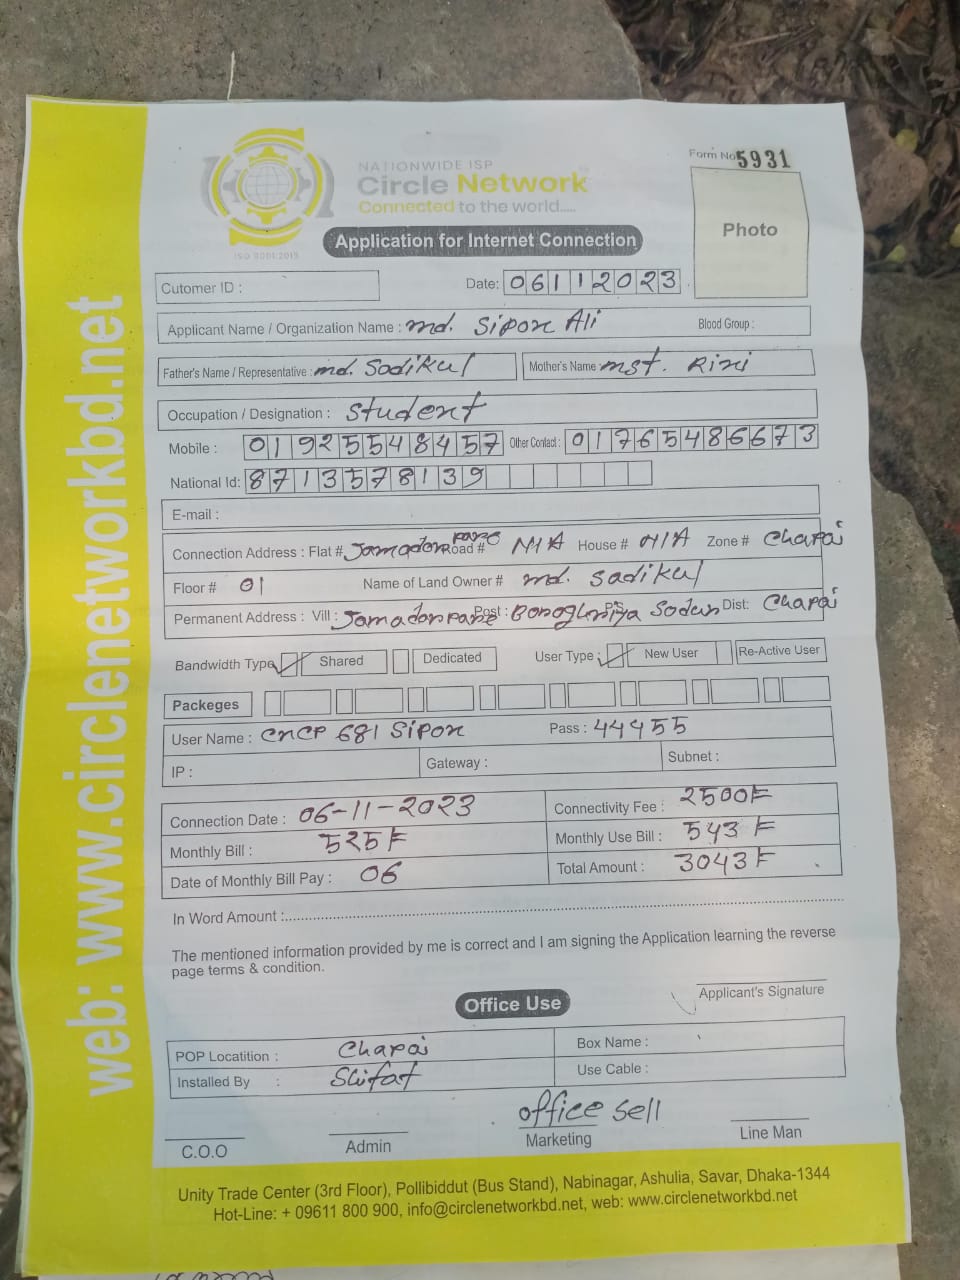 NATIONWIDE ISP
Circle Network
Connected to the world.....
ISO 9001:2015
Form No 5931
Photo
Application for Internet Connection
Cutomer ID :
Date: 06112023
Applicant Name / Organization Name : md. Sipon Ali Blood Group :
Father's Name / Representative : md. Sadikul Mother's Name mst. Rini
Occupation / Designation : Student
Mobile : 01925548457 Other Contact : 01765486673
National Id: 8713578139
E-mail :
Connection Address : Flat # Jamadarpara Road # N/A House # N/A Zone # Chapai
Floor # 01 Name of Land Owner # md. Sadikul
Permanent Address : Vill : Jamadarpara Post : PS: Sodur Dist: Chapai
Bandwidth Type Shared Dedicated User Type : New User Re-Active User
Packeges
User Name : CNCP 681 Sipon Pass : 44455
IP : Gateway : Subnet :
Connection Date : 06-11-2023 Connectivity Fee : 2500৳
Monthly Bill : 525৳ Monthly Use Bill : 543৳
Date of Monthly Bill Pay : 06 Total Amount : 3043৳
In Word Amount :
The mentioned information provided by me is correct and I am signing the Application learning the reverse
page terms & condition.
Applicant's Signature
Office Use
POP Locatition : Chapai Box Name :
Installed By : Shifat Use Cable :
office sell
C.O.O Admin Marketing Line Man
Unity Trade Center (3rd Floor), Pollibiddut (Bus Stand), Nabinagar, Ashulia, Savar, Dhaka-1344
Hot-Line: + 09611 800 900, info@circlenetworkbd.net, web: www.circlenetworkbd.net
web: www.circlenetworkbd.net